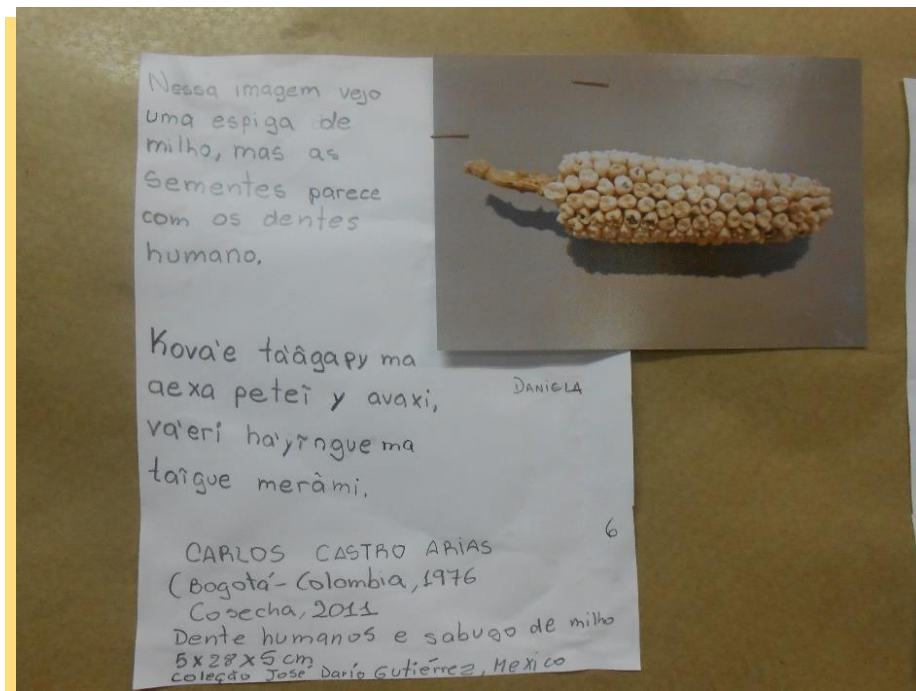 Nessa imagem vejo
uma espiga de
milho, mas as
Sementes parece
com os dentes
humano.
Kova'e ta'ãgapy ma
aexa peteĩ y avaxi,
va'eri ha'yĩngue ma
taĩgue merãmi.
DANIELA
6
CARLOS CASTRO ARIAS
(Bogotá - Colombia, 1976
Cosecha, 2011
Dente humanos e sabugo de milho
5x28x5 cm
coleção José Darío Gutiérrez, Mexico